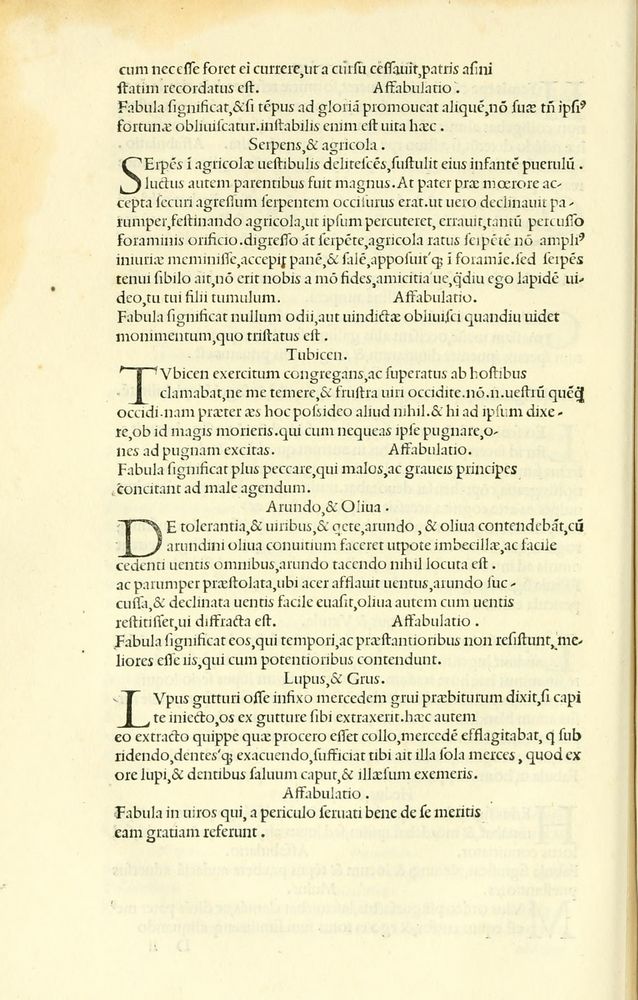 cum necesse foret ei currere,ut a cursu cessauit,patris asini
statim recordatus est. Affabulatio .
Fabula significat,&si tēpus ad gloriā promoueat aliquē,nō suæ tñ ipsiꝰ
fortunæ obliuiscatur.instabilis enim est uita hæc .
Serpens,& agricola .
SErpēs ī agricolæ uestibulis delitescēs,sustulit eius infantē puerulū .
luctus autem parentibus fuit magnus. At pater præ mœrore ac-
cepta securi agressum serpentem occisurus erat.ut uero declinauit pa-
rumper,festinando agricola,ut ipsum percuteret, errauit,tantū percusso
foraminis orificio.digresso āt serpēte,agricola ratus serpētē nō ampliꝰ
iniuriæ meminisse,accepit panē,& salē,apposuitꝗ; ī foramīe.sed serpēs
tenui sibilo ait,nō erit nobis a mō fides,amicitia ue,q̄diu ego lapidē ui-
deo,tu tui filii tumulum. Affabulatio.
Fabula significat nullum odii,aut uindictæ obliuisci quandiu uidet
monimentum,quo tristatus est .
Tubicen.
TVbicen exercitum congregans,ac superatus ab hostibus
clamabat,ne me temere,& frustra uiri occidite.nō.n.uestrū quēꝗ
occidi.nam præter æs hoc possideo aliud nihil.& hi ad ipsum dixe-
re,ob id magis morieris.qui cum nequeas ipse pugnare,o-
nes ad pugnam excitas. Affabulatio.
Fabula significat plus peccare,qui malos,ac graueis principes
concitant ad male agendum.
Arundo,& Oliua .
DE tolerantia,& uiribus,& qete,arundo , & oliua contendebāt,cū
arundini oliua conuitium faceret utpote imbecillæ,ac facile
cedenti uentis omnibus,arundo tacendo nihil locuta est .
ac parumper præstolata,ubi acer afflauit uentus,arundo suc-
cussa,& declinata uentis facile euasit,oliua autem cum uentis
restitisset,ui diffracta est. Affabulatio .
Fabula significat eos,qui tempori,ac præstantioribus non resistunt,me-
liores esse iis,qui cum potentioribus contendunt.
Lupus,& Grus.
LVpus gutturi osse infixo mercedem grui præbiturum dixit,si capi
te iniecto,os ex gutture sibi extraxerit.hæc autem
eo extracto quippe quæ procero esset collo,mercedē efflagitabat, ꝗ sub
ridendo,dentesꝗ; exacuendo,sufficiat tibi ait illa sola merces , quod ex
ore lupi,& dentibus saluum caput,& illæsum exemeris.
Affabulatio .
Fabula in uiros qui, a periculo seruati bene de se meritis
eam gratiam referunt .